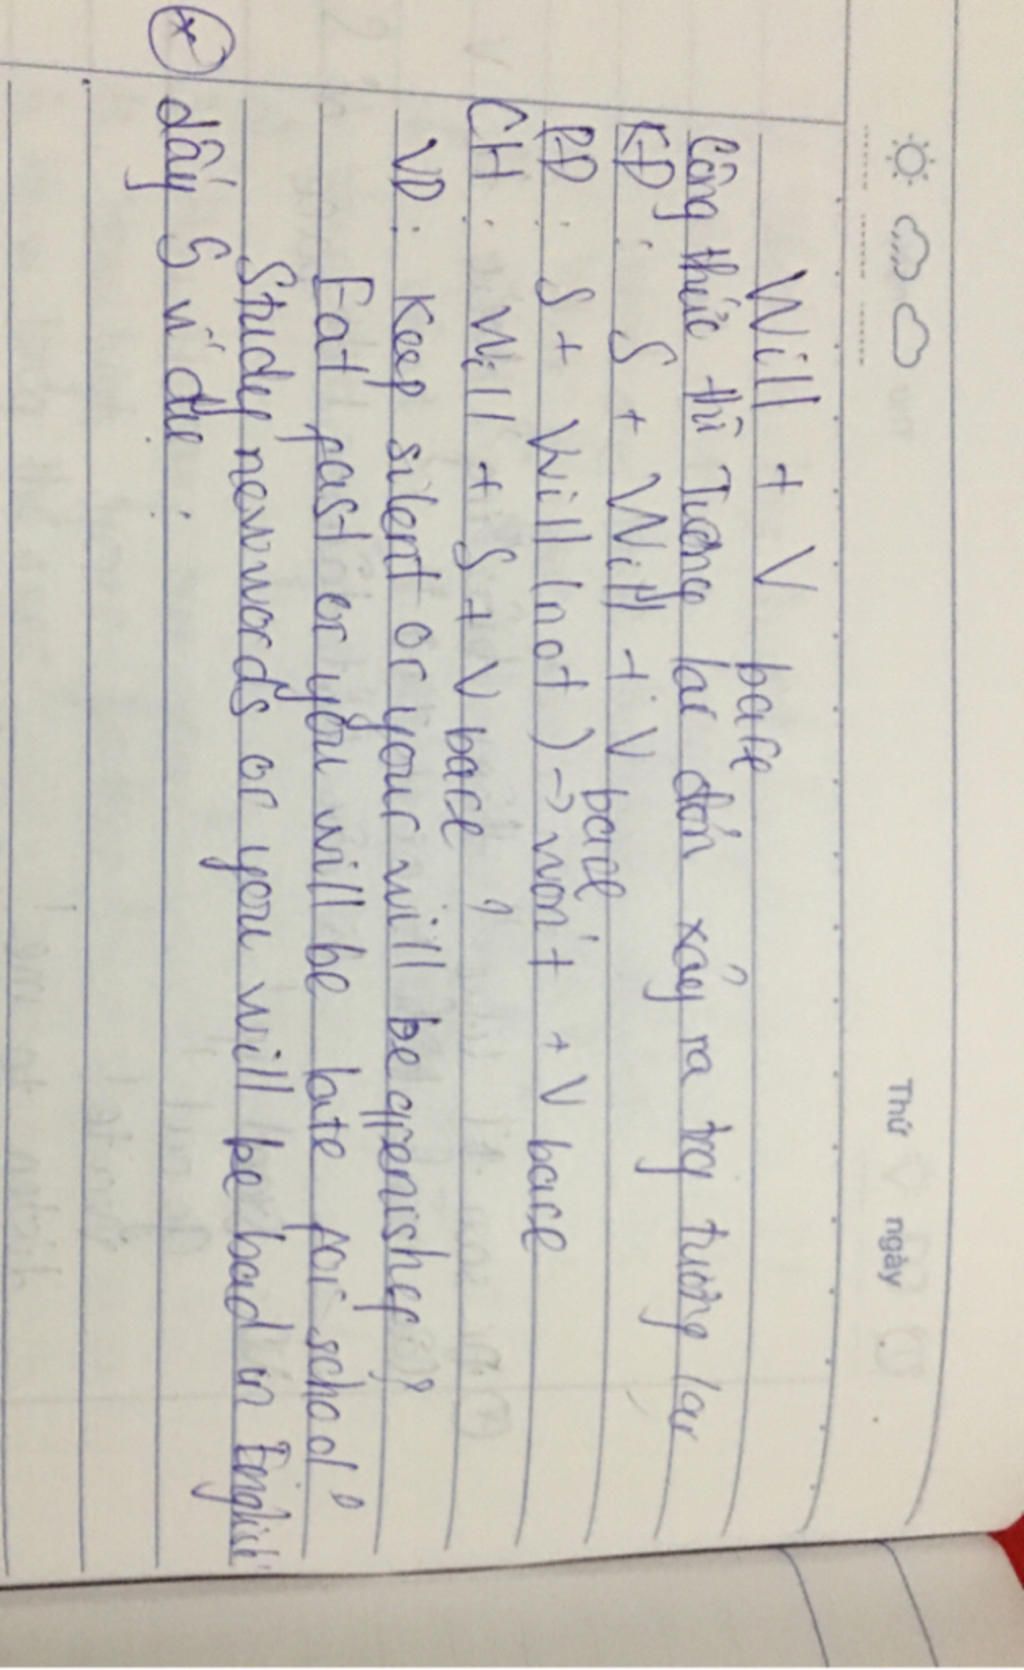 Thứ ngày
Will + V bare
Công thức thì Tương lai đơn xảy ra trg tương lai
KĐ : S + Will + V bare
PĐ : S + Will (not) -> won't + V bare
CH : Will + S + V bare ?
VD : Keep silent or your will be
Eat fast or you will be late for school
Study new words or you will be bad in English
* dấy 5 ví dụ :